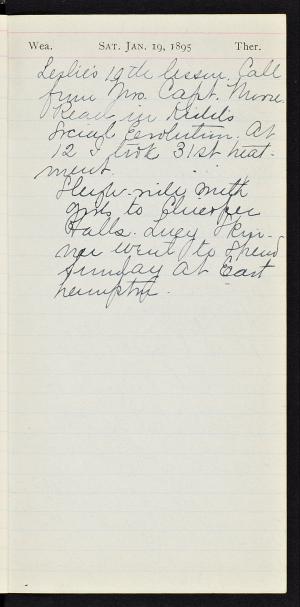 Wea. SAT. JAN. 19, 1895 Ther.
Leslie's 19th lesson. Call
from Mrs. Capt. Moore.
Read in Kidd's
Social Evolution. At
12 I took 31st treat-
ment.
Sleigh-ride with
girls to Chicopee
Falls. Lucy Skin-
ner went to spend
Sunday at East
hampton.